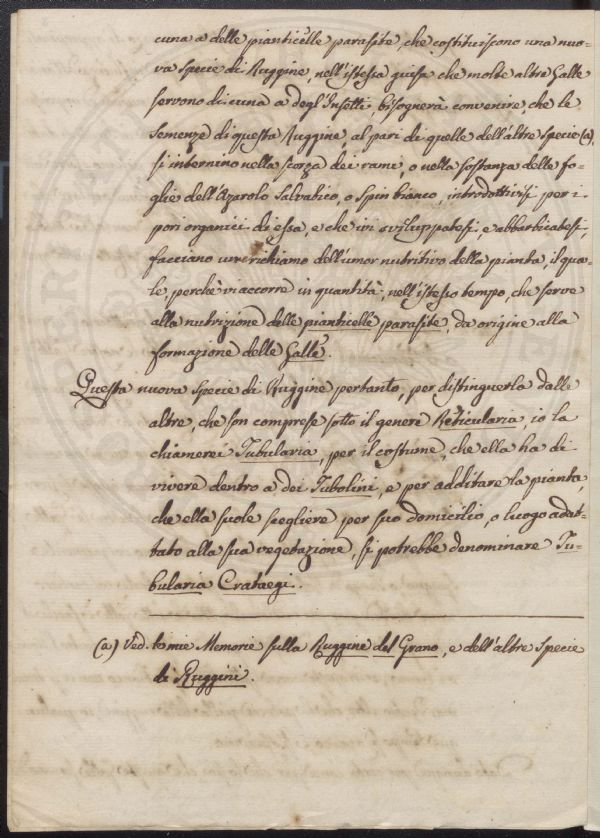 cuna a delle pianticelle parasite, che costituiscono una nuo-
va specie di Ruggine, nell'istessa guisa che molte altre Galle
servono di cuna a degl'Insetti, bisognerà convenire, che le
Semenze di questa Ruggine, al pari di quelle dell'altre specie (a),
si internino nella scorza dei rami, o nella sostanza delle fo-
glie dell'Azarolo Salvatico, o Spin bianco, introdottivisi per i
pori organici di essa, e che ivi sviluppatesi, e abbarbicatesi,
facciano un richiamo dell'umor nutritivo della pianta, il qua-
le, perchè vi accorre in quantità, nell'istesso tempo, che serve
alla nutrizione delle pianticelle parasite, da origine alla
formazione delle Galle.
Questa nuova specie di Ruggine pertanto, per distinguerla dalle
altre, che son comprese sotto il genere Reticularia, io la
chiamerei Tubularia, per il costume, che ella ha di
vivere dentro a dei Tubolini, e per additare la pianta,
che ella suole scegliere per suo domicilio, o luogo adat-
tato alla sua vegetazione, si potrebbe denominare Tu-
bularia Crataegi.
(a) Ved. le mie Memorie sulla Ruggine del Grano, e dell'altre specie
di Ruggini.